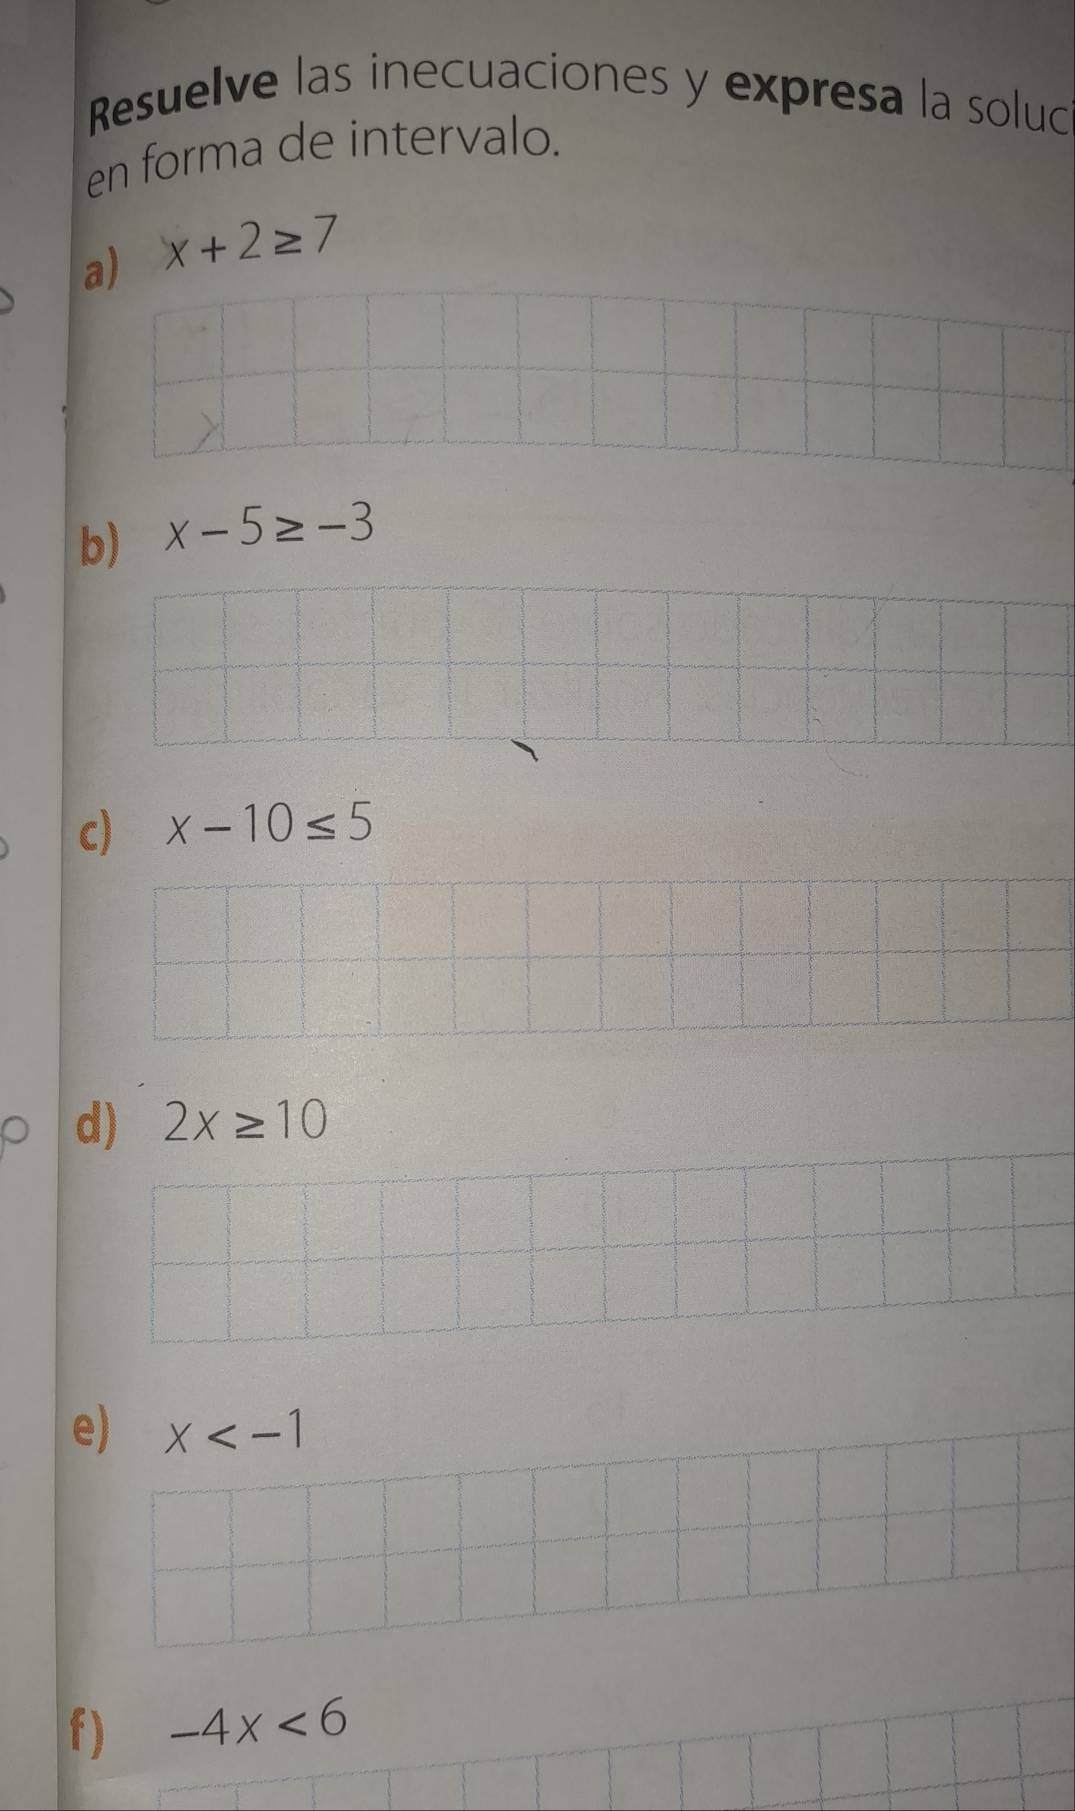 Resuelve las inecuaciones y expresa la soluci
en forma de intervalo.
a) x + 2 ≥ 7
b) x – 5 ≥ –3
c) x – 10 ≤ 5
d) 2x ≥ 10
e) x < –1
f) –4x < 6